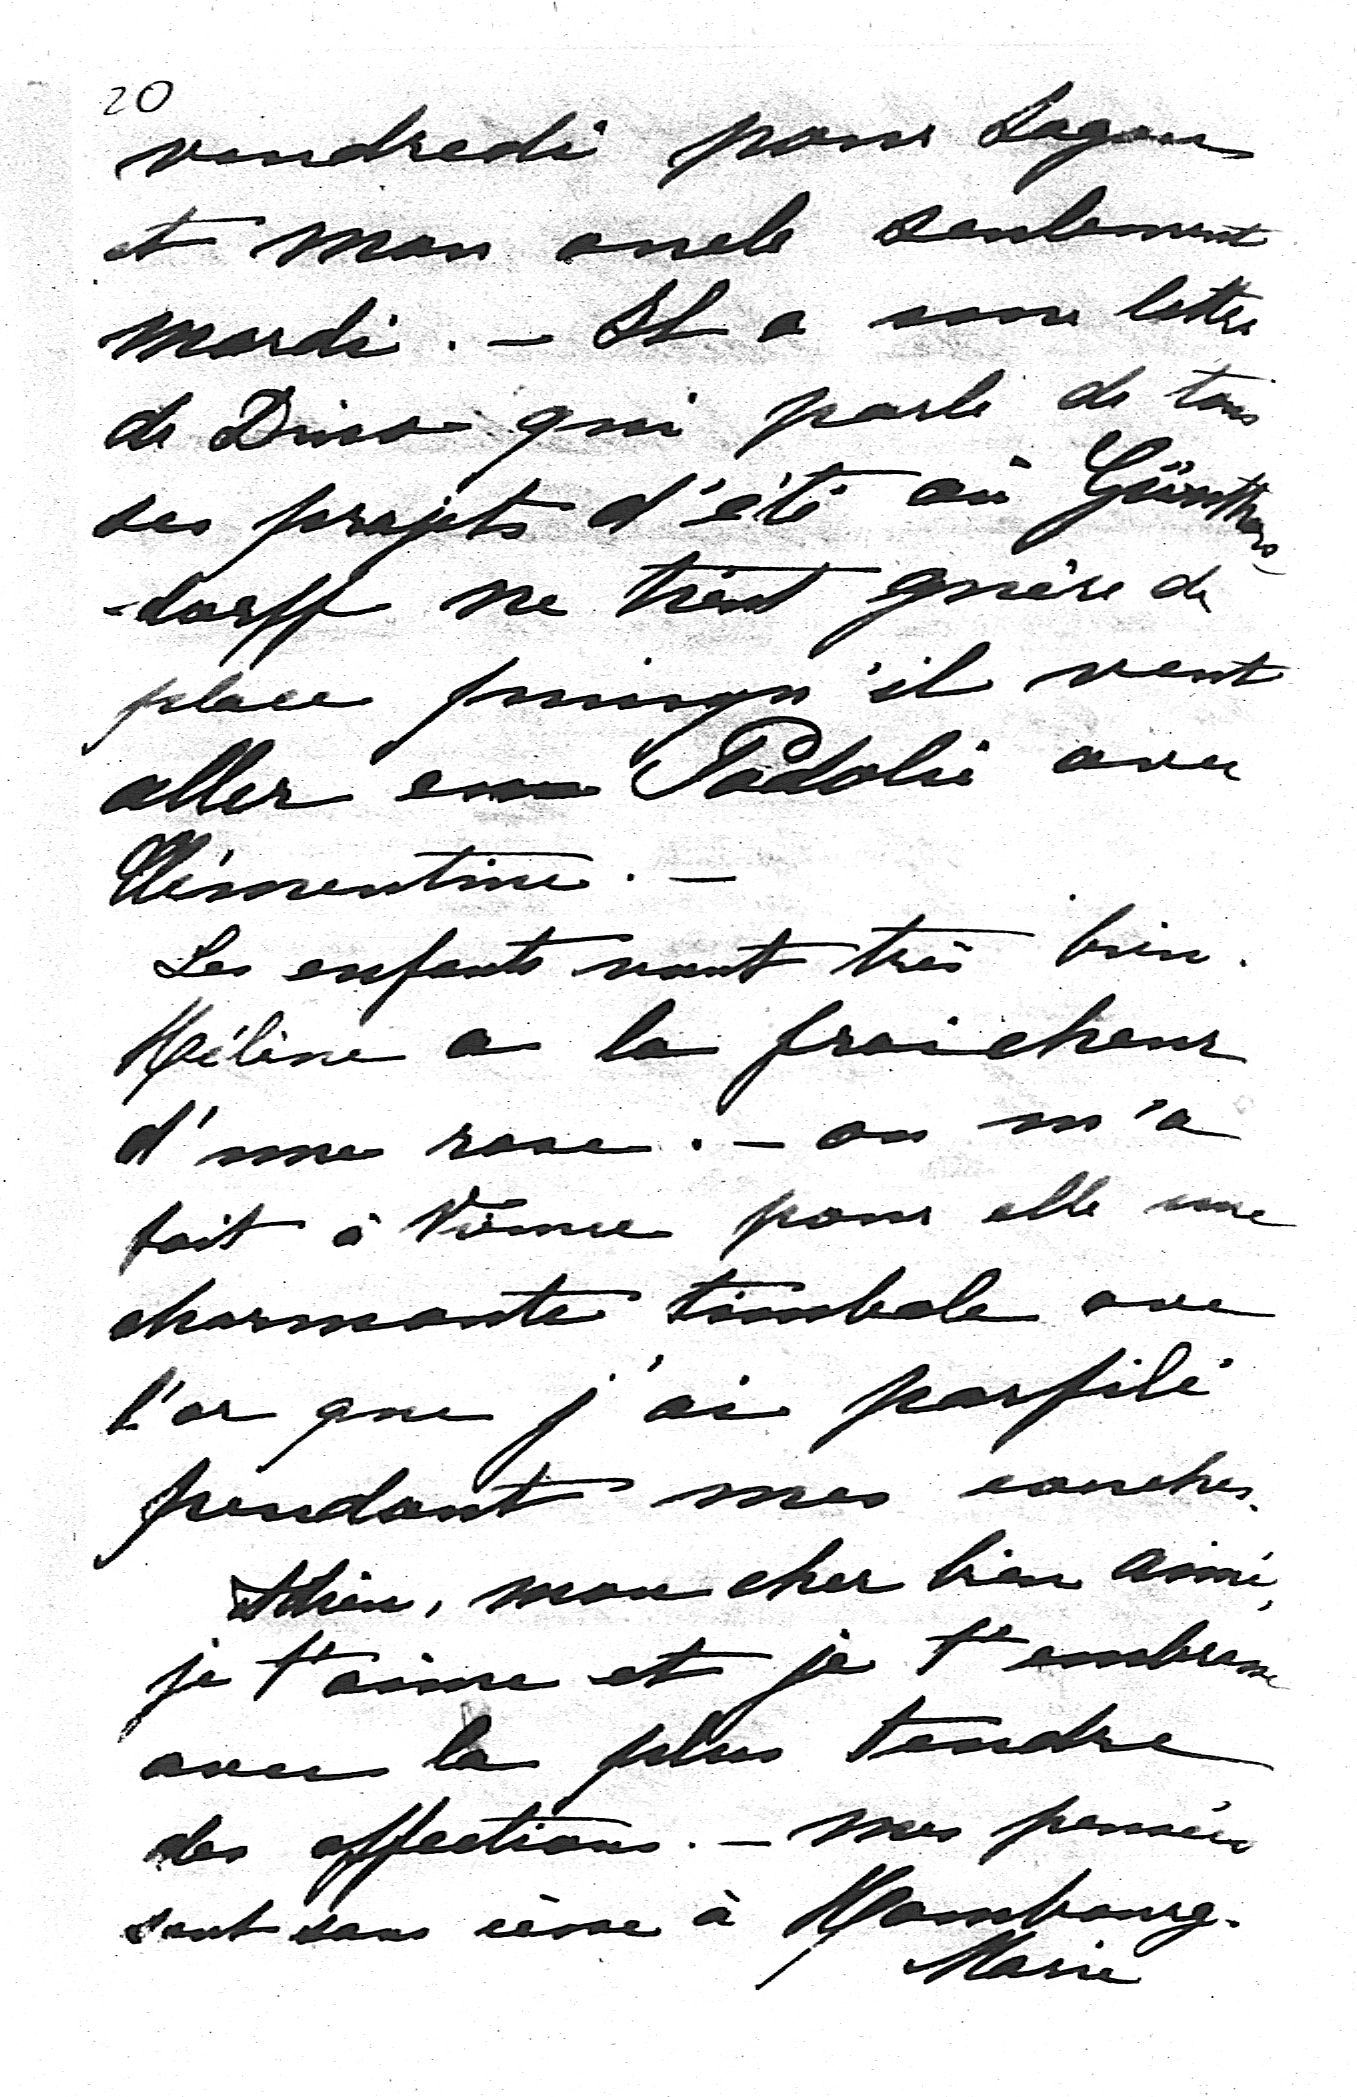 20
vendredi pour Sagan
et mon oncle seulement
mardi. - Il a une lettre
de Dino qui parle de tous
ses projets d'été où Günthers
-dorff ne tient guère de
place puisqu'il veut
aller en Podolie avec
Clémentine. -
Les enfants vont très bien.
Hélène a la fraicheur
d'une rose. - on m'a
fait à Vienne pour elle une
charmante timbale avec
l'or que j'ai parfilé
pendant mes couches.
Adieu, mon cher bien aimé,
je t'aime et je t'embrasse
avec la plus tendre
des affections. - mes pensées
sont sans cesse à Hambourg.
Marie